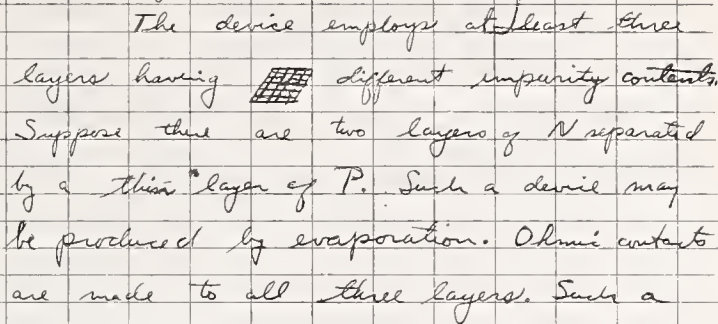 The device employs at least three
layers having different impurity contents.
Suppose there are two layers of N separated
by a thin layer of P. Such a device may
be produced by evaporation. Ohmic contacts
are made to all three layers. Such a